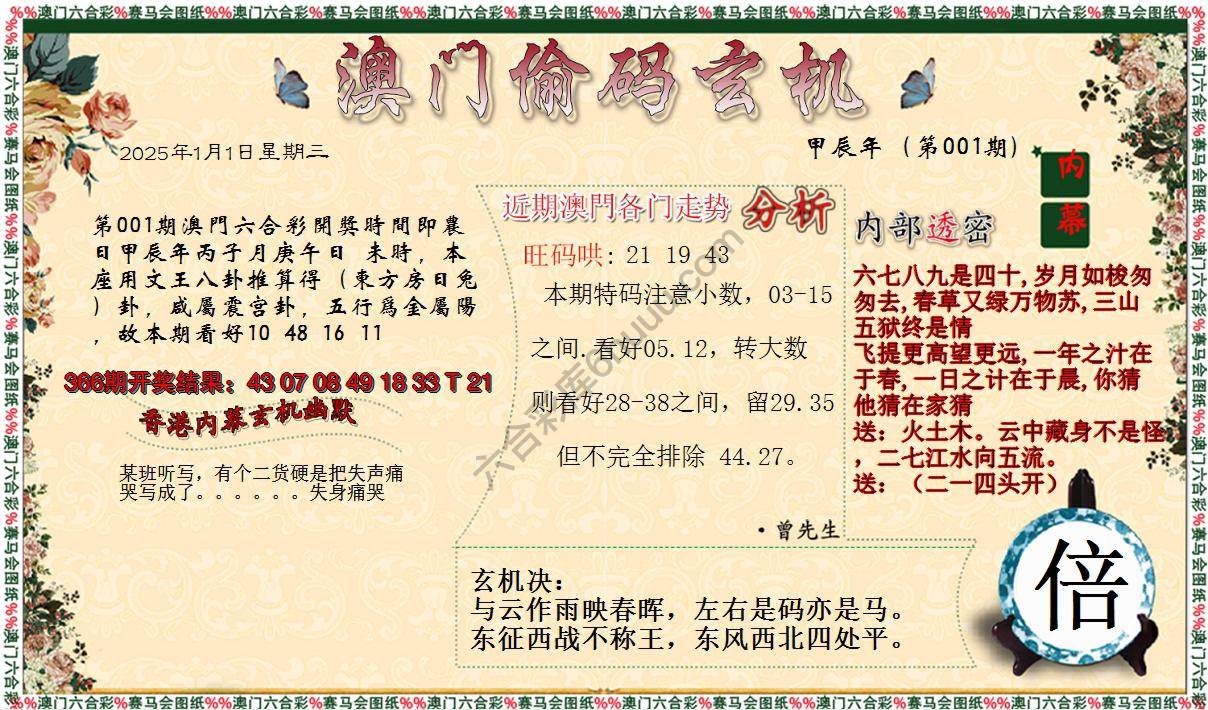 %%澳门六合彩%赛马会图纸%%澳门六合彩%赛马会图纸%%澳门六合彩%赛马会图纸%%澳门六合彩%赛马会图纸%%澳门六合彩%赛马会图纸%%澳门六合彩%赛马会图纸%%
澳门偷码玄机
2025年1月1日星期三
甲辰年（第001期）
内幕
第001期澳門六合彩開獎時間即農
日甲辰年丙子月庚午日 未時，本
座用文王八卦推算得（東方房日兔
）卦，咸屬震宫卦，五行爲金屬陽
，故本期看好10 48 16 11
366期开奖结果：43 07 08 49 18 33 T 21
香港内幕玄机幽默
某班听写，有个二货硬是把失声痛
哭写成了。。。。。。失身痛哭
近期澳門各门走势 分析
旺码哄: 21 19 43
本期特码注意小数，03-15
之间.看好05.12，转大数
则看好28-38之间，留29.35
但不完全排除 44.27。
·曾先生
内部透密
六七八九是四十,岁月如梭匆
匆去,春草又绿万物苏,三山
五狱终是情
飞提更高望更远,一年之汁在
于春,一日之计在于晨,你猜
他猜在家猜
送：火土木。云中藏身不是怪
，二七江水向五流。
送：（二一四头开）
玄机决：
与云作雨映春晖，左右是码亦是马。
东征西战不称王，东风西北四处平。
倍
%%澳门六合彩%赛马会图纸%%澳门六合彩%赛马会图纸%%澳门六合彩%赛马会图纸%%澳门六合彩%赛马会图纸%%澳门六合彩%赛马会图纸%%澳门六合彩%赛马会图纸%%